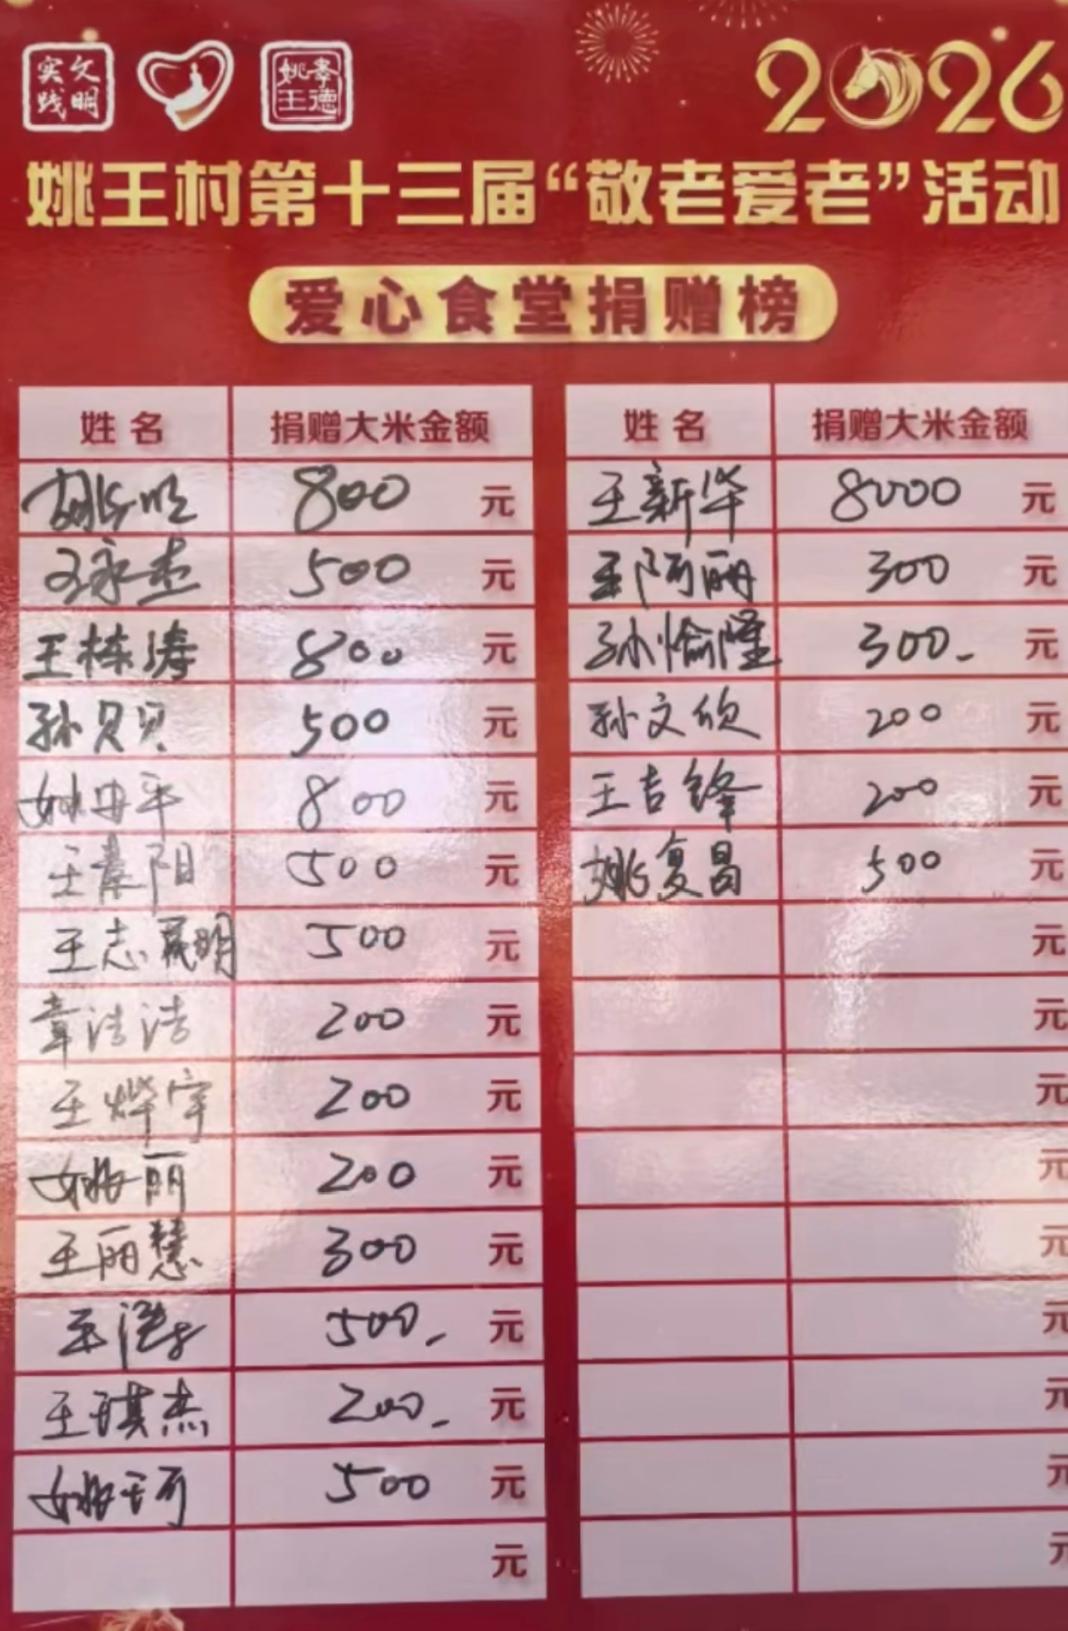 文明实践
孝德姚王
2026
姚王村第十三届“敬老爱老”活动
爱心食堂捐赠榜
姓名 捐赠大米金额
800 元
王永杰 500 元
王栋涛 800 元
孙贝贝 500 元
姚安平 800 元
王秦阳 500 元
王志 明 500 元
章洁洁 200 元
王烨宇 200 元
姚丽 200 元
王丽慧 300 元
王 500. 元
王琪杰 200. 元
姚珂 500 元
元
姓名 捐赠大米金额
王新华 8000 元
王阿丽 300 元
孙愉隆 300. 元
孙文欣 200 元
王吉锋 200 元
姚复昌 500 元
元
元
元
元
元
元
元
元
元